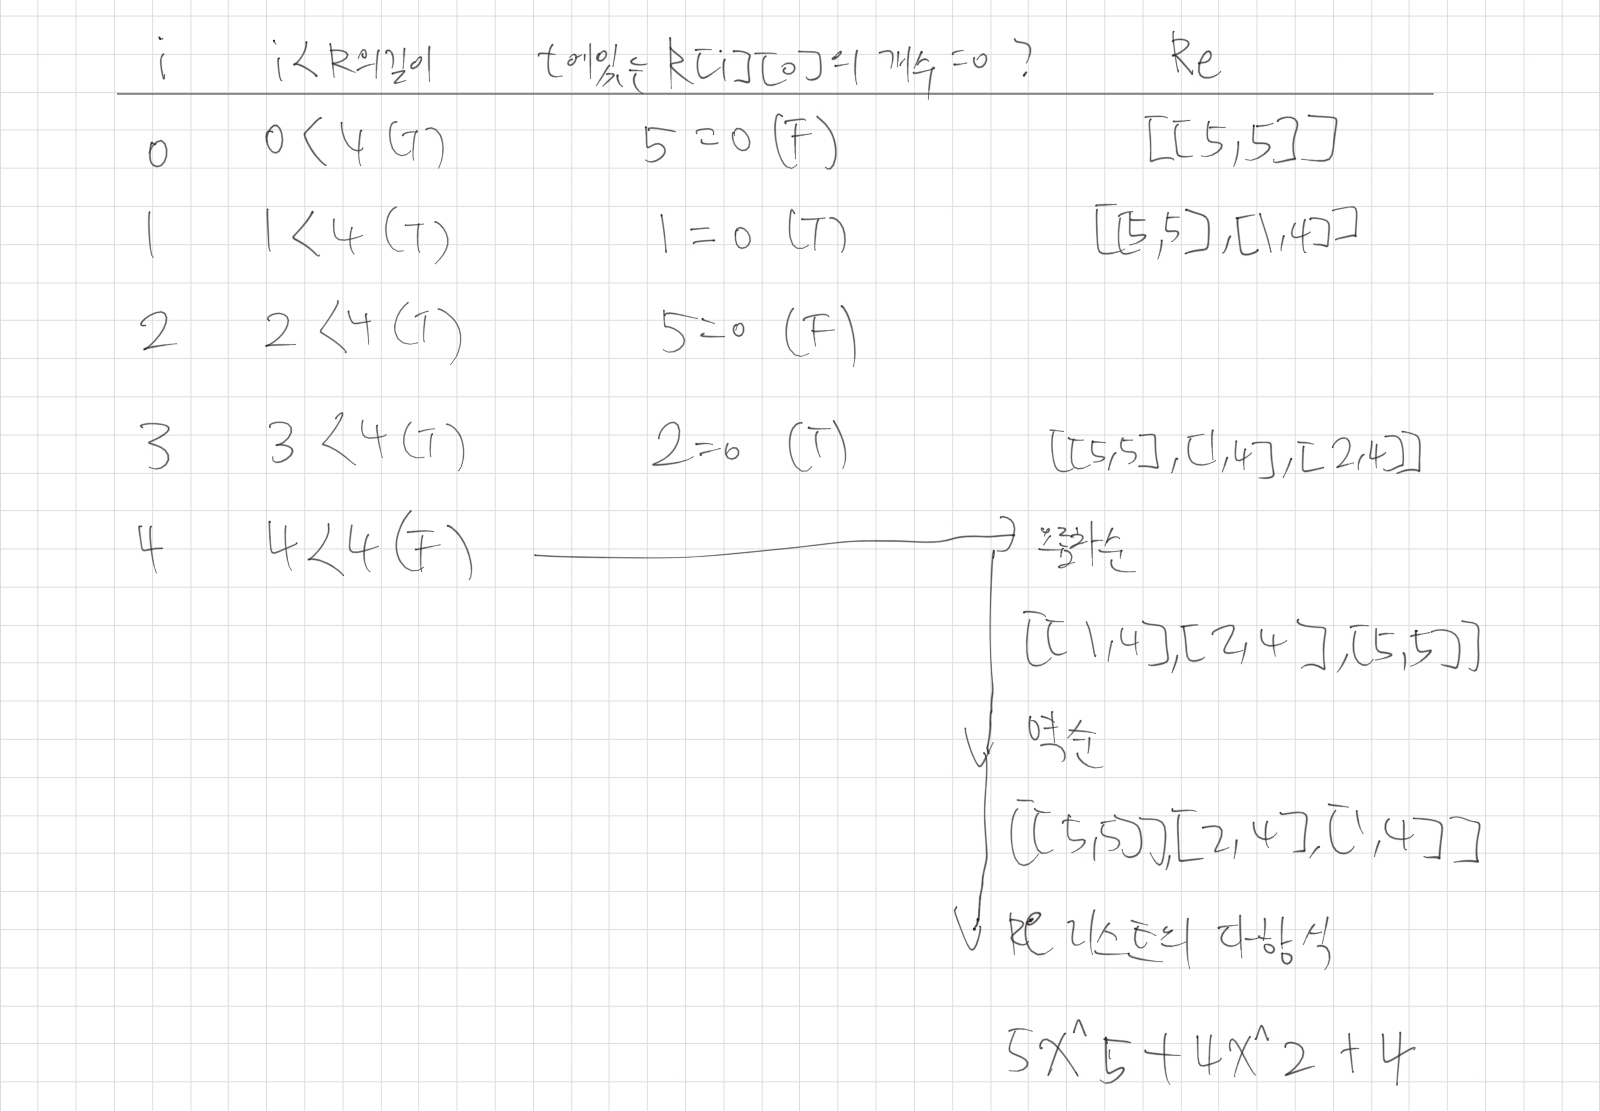 i i<R의길이 t에있는 R[i][0]의 개수=0 ? Re
0 0<4(T) 5=0 (F) [[5,5]]
1 1<4(T) 1=0 (T) [[5,5],[1,4]]
2 2<4(T) 5=0 (F)
3 3<4(T) 2=0 (T) [[5,5],[1,4],[2,4]]
4 4<4(F) 오름차순
[[1,4],[2,4],[5,5]]
역순
[[5,5],[2,4],[1,4]]
Re 리스트의 다항식
5X^5+4X^2+4